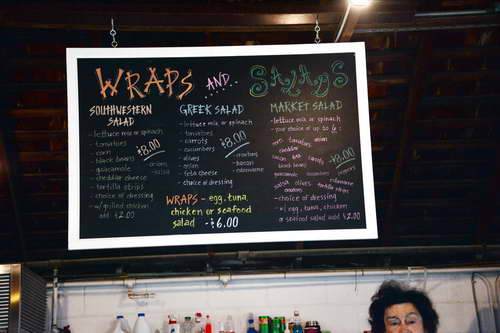 WRAPS AND SALADS
SOUTHWESTERN
SALAD
- lettuce mix or spinach
- tomatoes
- corn
- black beans
- guacamole
- cheddar cheese
- tortilla strips
- choice of dressing
- w/ grilled chicken
add $2.00
$8.00
onions
salsa
GREEK SALAD
- lettuce mix or spinach
- tomatoes
- carrots
- cucumbers
- olives
- onion
- feta cheese
- choice of dressing
$8.00
croutons
bacon
edamame
WRAPS - egg, tuna,
chicken or seafood
salad - $6.00
MARKET SALAD
- lettuce mix or spinach
- your choice of up to 6:
corn tomatoes onion
cheddar
black beans
carrots
guacamole
salsa olives
tortilla strips
edamame
$8.00
- choice of dressing
- w/ egg, tuna, chicken
or seafood salad add $2.00